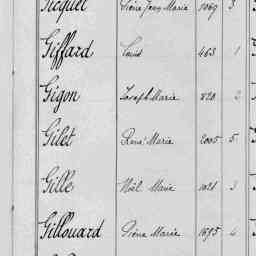 Pierre Jean Marie 1069 3
Giffard Louis 463 1
Gigon Joseph Marie 820 2
Gilet René Marie 2005 5
Gille Noël Marie 1021 3
Gillouard Pierre Marie 1695 4